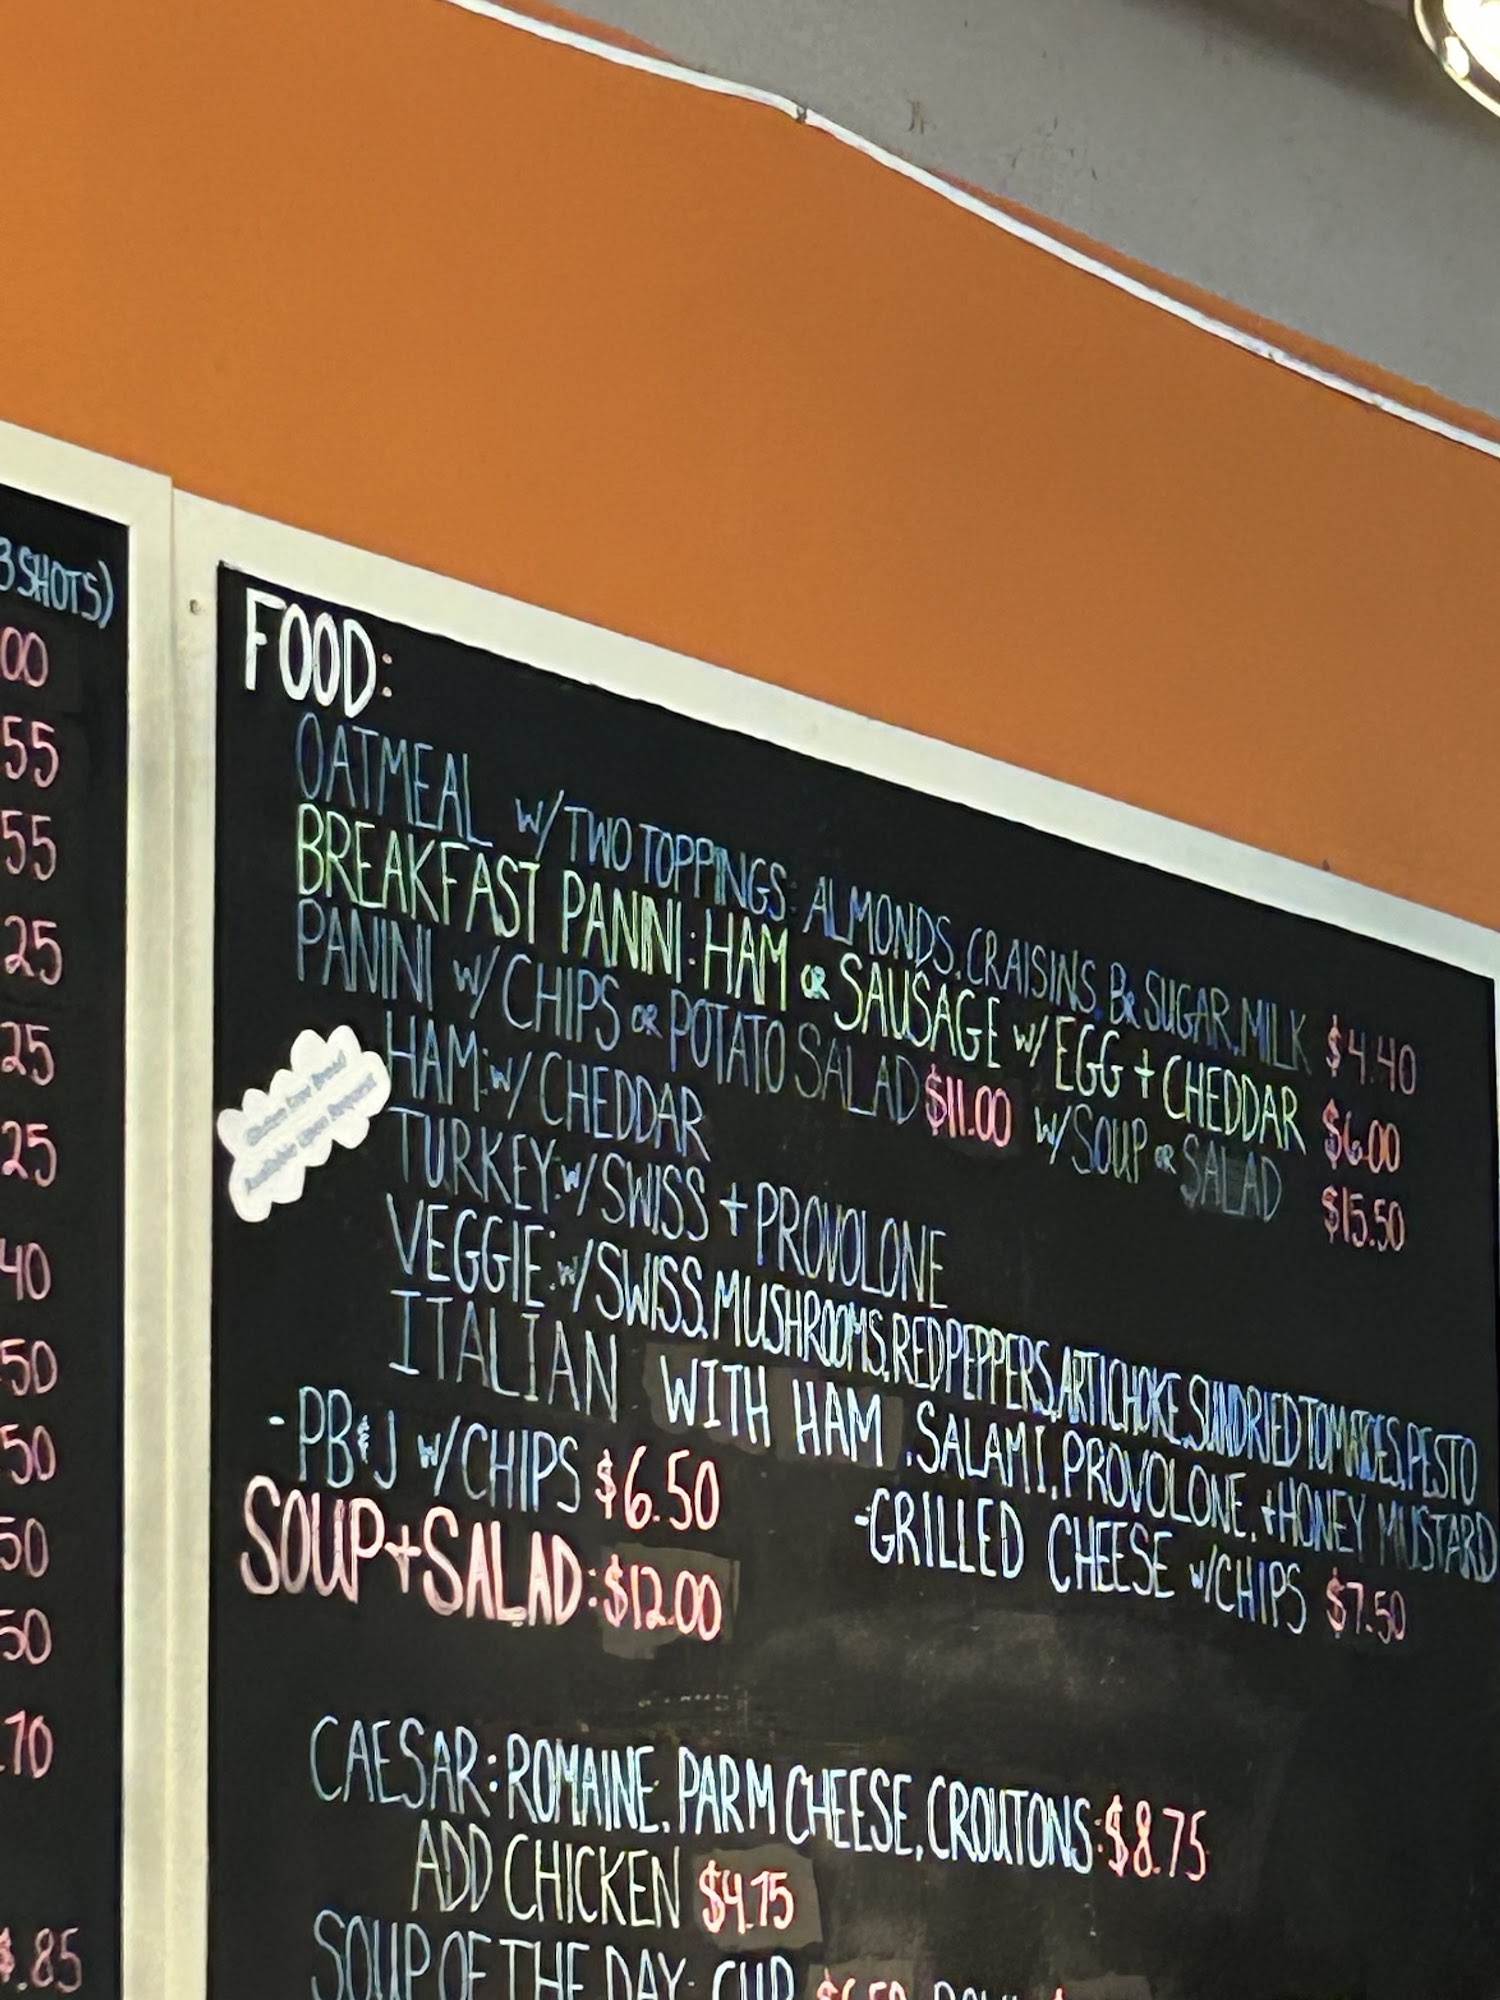 3 SHOTS)
00
55
55
25
25
25
40
50
50
50
50
.70
.85
FOOD:
OATMEAL w/ TWO TOPPINGS: ALMONDS, CRAISINS, BR SUGAR, MILK $4.40
BREAKFAST PANINI: HAM OR SAUSAGE w/ EGG + CHEDDAR $6.00
PANINI w/ CHIPS OR POTATO SALAD $11.00 w/ SOUP OR SALAD $15.50
HAM: w/ CHEDDAR
Gluten Free Bread
Available Upon Request
TURKEY: w/ SWISS + PROVOLONE
VEGGIE: w/ SWISS, MUSHROOMS, RED PEPPERS, ARTICHOKE, SUNDRIED TOMATOES, PESTO
ITALIAN WITH HAM, SALAMI, PROVOLONE, + HONEY MUSTARD
- PB&J w/ CHIPS $6.50 - GRILLED CHEESE w/ CHIPS $7.50
SOUP + SALAD: $12.00
CAESAR: ROMAINE, PARM CHEESE, CROUTONS: $8.75
ADD CHICKEN $4.75
SOUP OF THE DAY: CUP